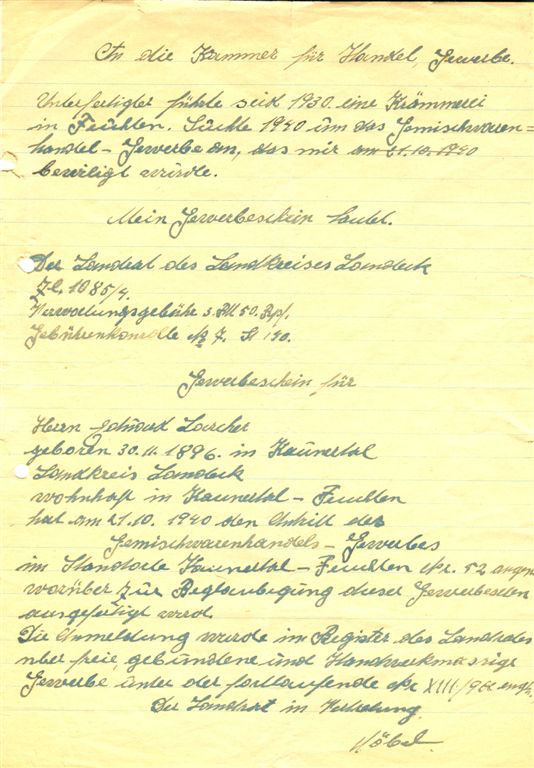 An die Kammer für Handel, Gewerbe.
Unterfertigter führte seit 1930 eine Krämmerei
in Feuchten. Suchte 1940 um das Gemischwaren=
handel - Gewerbe an, das mir am 21.10.1940
bewiligt wurde.
Mein Gewerbeschein lautet.
Der Landrat des Landkreises Landeck
Zl. 1085/4.
Verwaltungsgebühr 3. RM 50. Rpf.
Gebührenkontrolle № 7. St 140.
Gewerbeschein für
Herrn Eduard Larcher
geboren 30.11.1896. in Kaunertal
Landkreis Landeck
wohnhaft in Kaunertal - Feuchten
hat am 21.10.1940 den Antritt des
Gemischwarenhandels - Gewerbes
im Standorte Kaunertal - Feuchten Nr. 52 angem
worüber zur Beglaubigung dieser Gewerbeschein
ausgefertigt wird.
Die Anmeldung wurde im Register des Landrates
über freie, gebundene und Handwerkmässige
Gewerbe unter der fortlaufende Nr XIII/962 engtr.
Der Landrat in Vertretung.